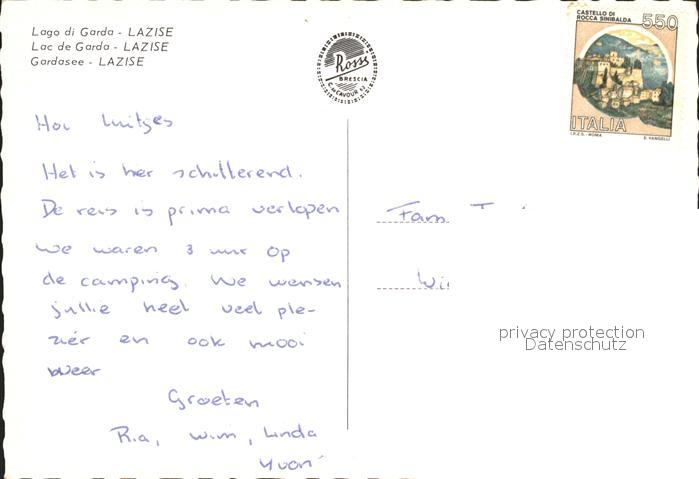 Lago di Garda - LAZISE
Lac de Garda - LAZISE
Gardasee - LAZISE
Rossi
BRESCIA
C. so CAVOUR 42
CASTELLO DI
ROCCA SINIBALDA
550
ITALIA
I.P.Z.S. - ROMA E. VANGELLI
Hoi luitjes
Het is hier schitterend.
De reis is prima verlopen
we waren 3 uur op
de camping. We wensen
jullie heel veel ple-
zier en ook mooi
weer
Groeten
Ria, Wim, Linda
Yvon
Fam
Wi
privacy protection
Datenschutz